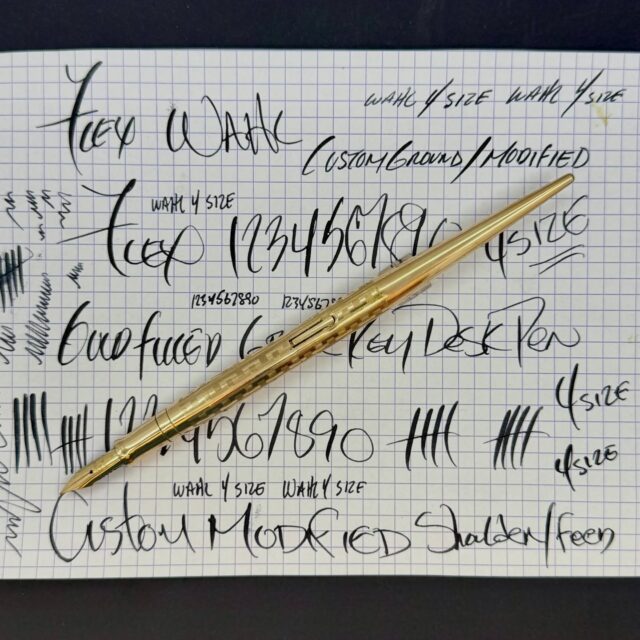 WAHL 4/SIZE WAHL 4/SIZE
FLEX WAHL
CUSTOM GROUND/MODIFIED
WAHL 4 SIZE
FLEX 1234567890 4 SIZE
1234567890 1234567
GOLD FILLED KEY DESK PEN
4 SIZE
4567890
4 SIZE
WAHL 4 SIZE WAHL 4 SIZE
CUSTOM MODIFIED Shoulder/Feed